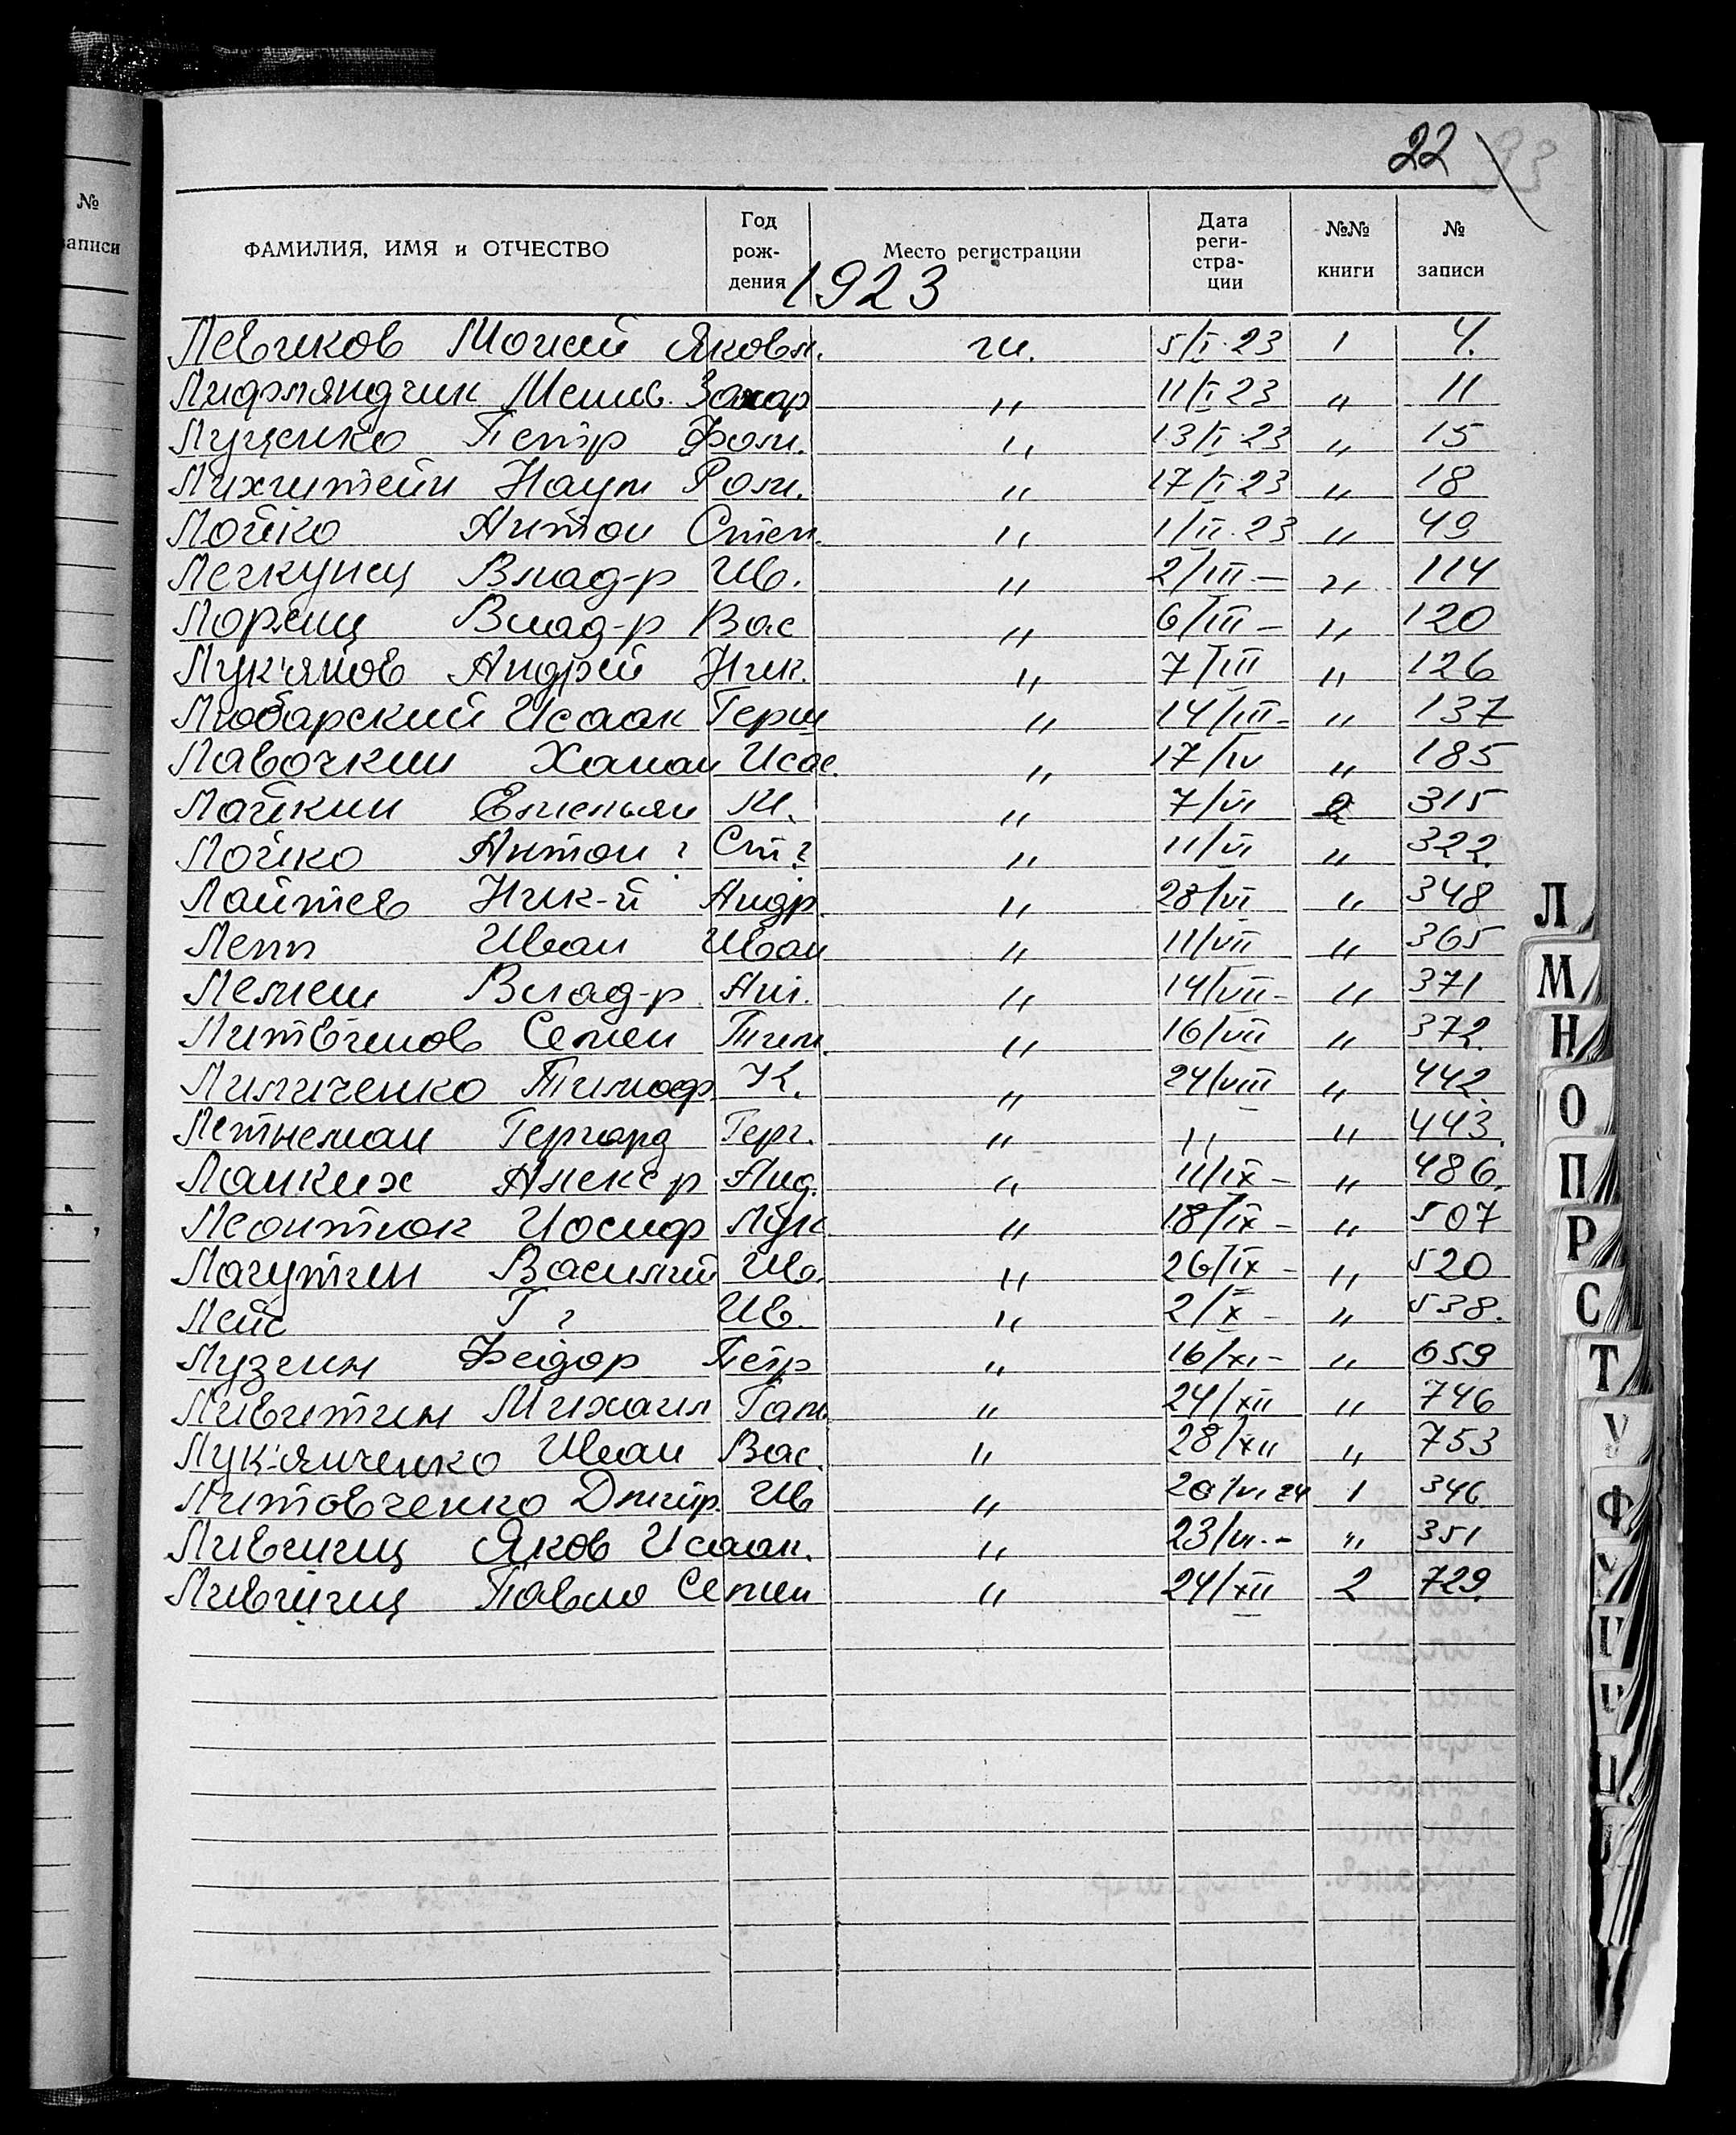 22 93
№
записи
ФАМИЛИЯ, ИМЯ и ОТЧЕСТВО Год рож-дения Место регистрации Дата реги-стра-ции №№ книги № записи
1923
Левчиков Мочией Яковл. ги. 5/I-23 1 4.
Лифляндчик Менш. Захар " 11/I 23 " 11
Луценко Петр Фом. " 13/I-23 " 15
Лихштейн Наум Ром. " 17/I-23 " 18
Лойко Антон Степ. " 1/II-23 " 49
Легкунец Влад-р Ив. " 2/III- " 114
Лорянц Влад-р Вас " 6/III- " 120
Лук'янов Андрей Ник. " 7/III " 126
Любарский Исаак Герш " 14/III- " 137
Лавочкин Ханан Исае. " 17/IV " 185
Лайкин Емельян М. " 7/VI 2 315
Лойко Антон ? Ст ? " 11/VI " 322.
Лаптев Ник-й Андр. " 28/VI " 348
Лепп Иван Иван " 11/VII " 365
Лемеш Влад-р Ант. " 14/VII- " 371
Литвинов Семен Тим. " 16/VII " 372.
Лиличенко Тимоф. К. " 24/VIII " 442.
Летнеман Гергард Герг. " " " 443.
Ланких Алекс р Анд. " 11/IX- " 486.
Леонтюк Иосиф Лук " 18/IX- " 507
Лагутин Василий Ив. " 26/IX- " 520
Лейс Г ? Ив. " 2/X- " 538.
Лузгин Федор Петр " 16/XI- " 659
Ливитин Михаил Гат. " 24/XII " 746
Лук'янченко Иван Вас. " 28/XII " 753
Литовченко Дмитр. Ив " 20/VI 24 1 346
Лившиц Яков Исаак. " 23/VI.- " 351
Лившиц Павло Семен " 24/XII 2 729.
Л
М
Н
О
П
Р
С
Т
У
Ф